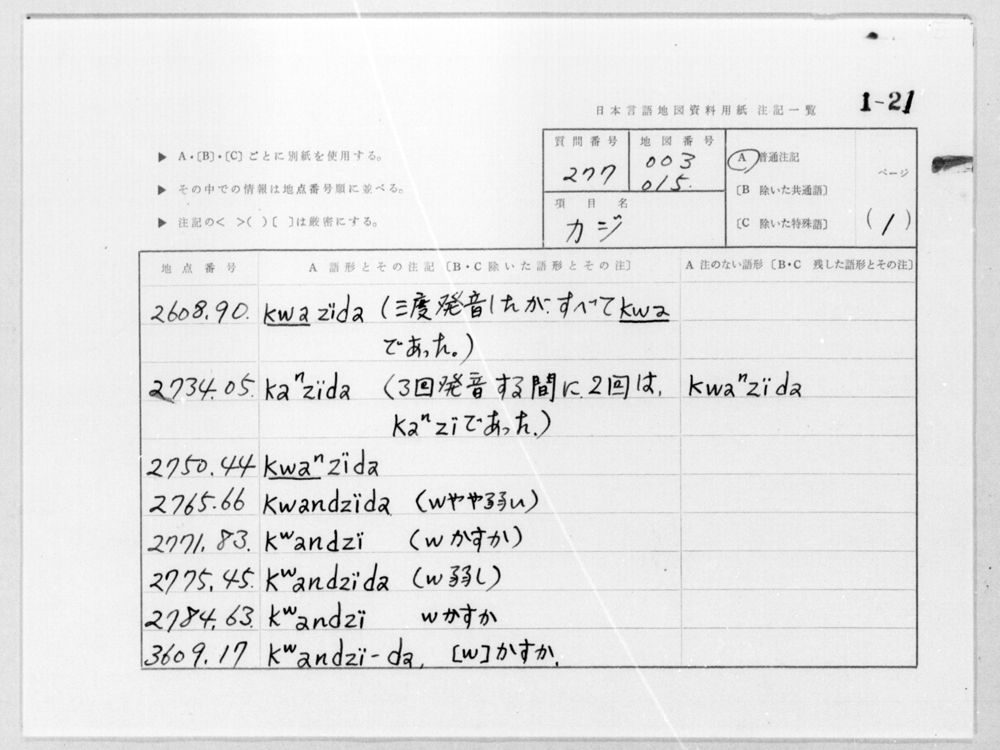 日本言語地図資料用紙 注記一覧
1-21
▶ A・〔B〕・〔C〕ごとに別紙を使用する。
▶ その中での情報は地点番号順に並べる。
▶ 注記の< >( )〔 〕は厳密にする。
質問番号
277
地図番号
003
015.
項目名
カジ
A 普通注記
〔B 除いた共通語〕
〔C 除いた特殊語〕
ページ
(1)
地点番号 A 語形とその注記〔B・C 除いた語形とその注〕 A 注のない語形〔B・C 残した語形とその注〕
2608.90. kwa zïda (三度発音したが、すべてkwa
であった。)
2734.05. kaⁿzïda (3回発音する間に、2回は、 kwaⁿzïda
kaⁿzïであった。)
2750.44 kwaⁿzïda
2765.66 kwandzïda (wやや弱い)
2771.83. kʷandzï (wかすか)
2775.45. kʷandzïda (w弱し)
2784.63. kʷandzï wかすか
3609.17 kʷandzï-da, [w]かすか.